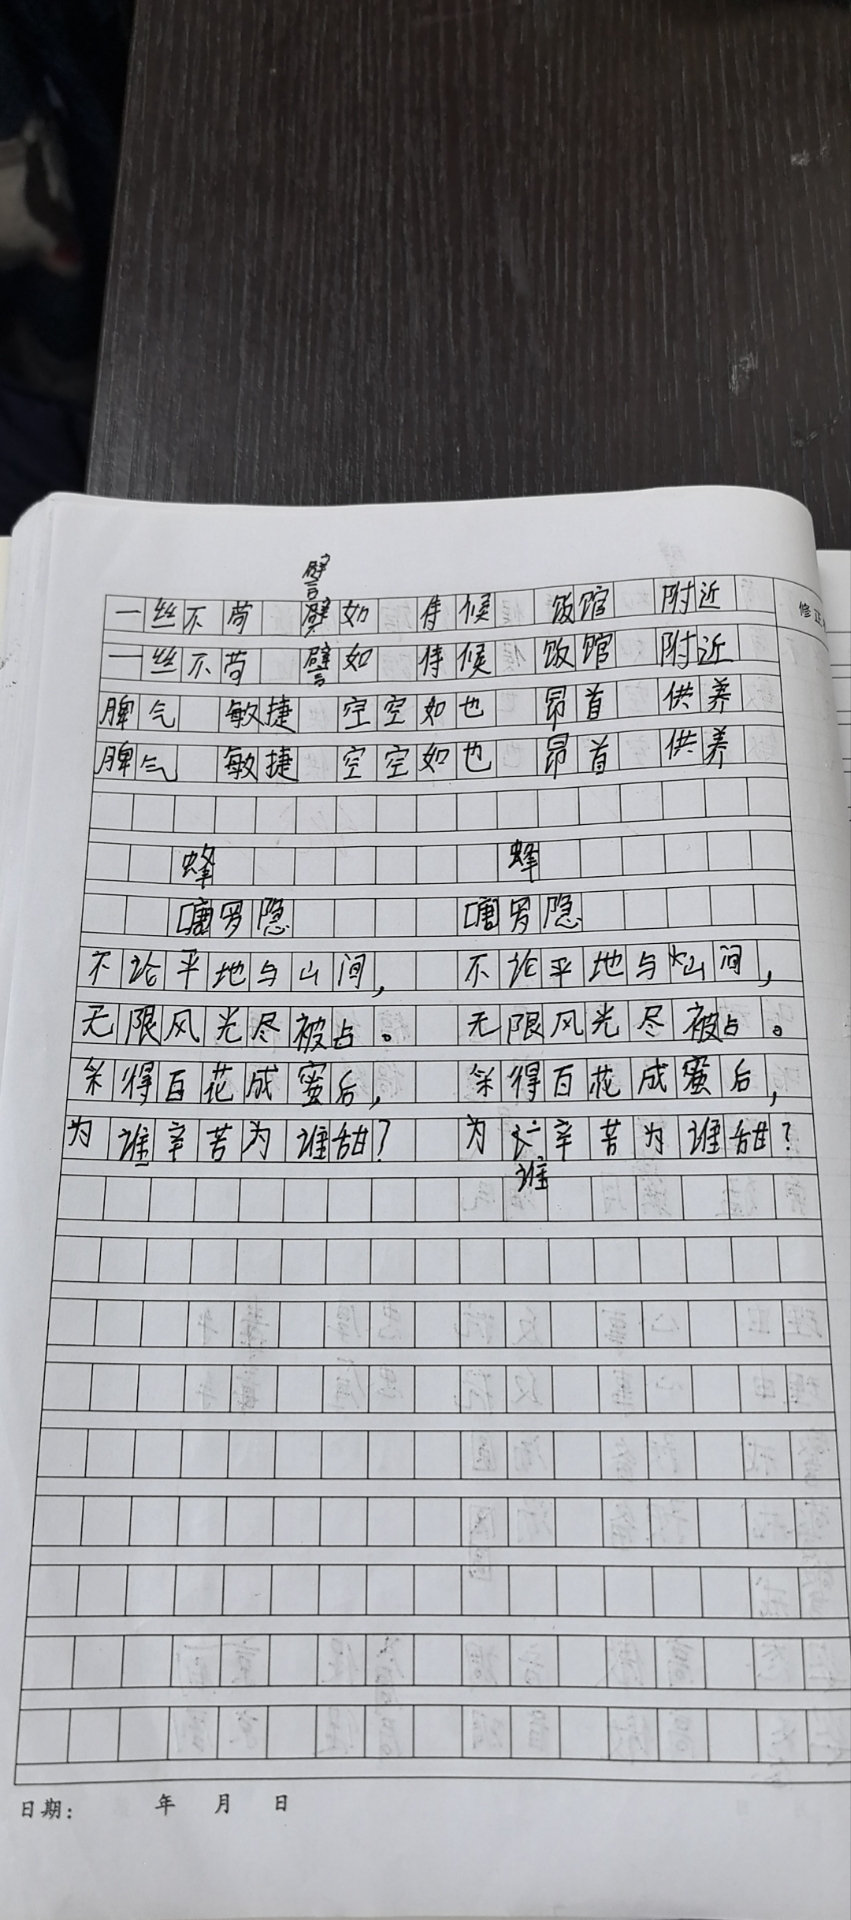 譬
一丝不苟 譬如 侍候 饭馆 附近
修正
一丝不苟 譬如 侍候 饭馆 附近
脾气 敏捷 空空如也 昂首 供养
脾气 敏捷 空空如也 昂首 供养
蜂 蜂
[唐罗隐 [唐罗隐
不论平地与山间, 不论平地与山间,
无限风光尽被占。 无限风光尽被占。
采得百花成蜜后, 采得百花成蜜后,
为谁辛苦为谁甜? 为 辛苦为谁甜?
谁
日期: 年 月 日